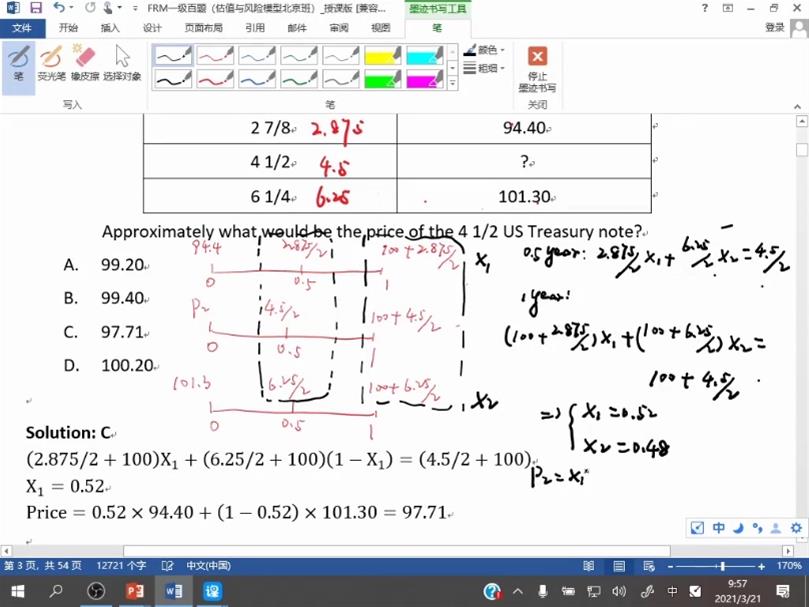 FRM一级百题（估值与风险模型北京班）_授课版 [兼容...
墨迹书写工具
文件 开始 插入 设计 页面布局 引用 邮件 审阅 视图 笔 登录
笔 荧光笔 橡皮擦 选择对象 颜色 粗细 停止墨迹书写
写入 笔 关闭
2 7/8 2.875 94.40
4 1/2 4.5 ?
6 1/4 6.25 101.30
Approximately what would be the price of the 4 1/2 US Treasury note?
A. 99.20
B. 99.40
C. 97.71
D. 100.20
94.4 2.875/2 100+2.875/2 X1
0 0.5 1
P2 4.5/2 100+4.5/2
0 0.5 1
101.3 6.25/2 100+6.25/2 X2
0 0.5 1
0.5 year: 2.875/2 X1 + 6.25/2 X2 = 4.5/2
1 year:
(100+2.875/2) X1 + (100+6.25/2) X2 =
100+4.5/2
=> { X1=0.52
X2=0.48
P2=X1
Solution: C
(2.875/2 + 100)X₁ + (6.25/2 + 100)(1 − X₁) = (4.5/2 + 100)
X₁ = 0.52
Price = 0.52 × 94.40 + (1 − 0.52) × 101.30 = 97.71
中
第 3 页，共 54 页 12721 个字 中文(中国) 170%
中 9:57
2021/3/21